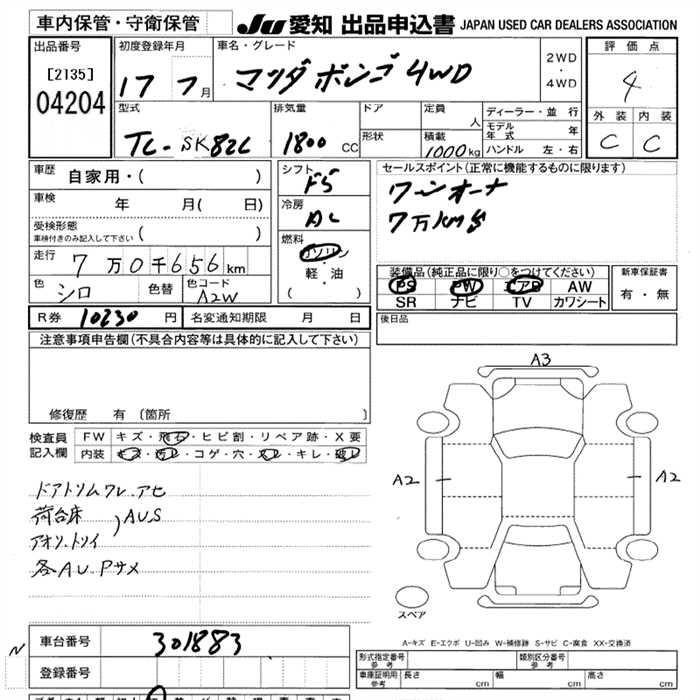 車内保管・守衛保管
JU 愛知 出品申込書 JAPAN USED CAR DEALERS ASSOCIATION
出品番号
[2135]
04204
初度登録年月
17 7月
車名・グレード
マツダ ボンゴ 4WD
2WD
・
4WD
評価点
4
外装 内装
C C
型式
TC-SK82L
排気量
1800 CC
ドア
形状
定員
人
積載
1000kg
ディーラー・並行
モデル年式 年
ハンドル 左・右
車歴
自家用・( )
車検
年 月( 日)
受検形態
車検付きのみ記入して下さい ( )
走行
7万0千656km
色
シロ
色替
色コード
A2W
シフト
F5
冷房
AC
燃料
ガソリン
・
軽・油
( )
セールスポイント(正常に機能するものに限ります)
ワンオーナ
7万km台
装備品(純正品に限り○をつけてください)
PS PW エアB AW
SR ナビ TV カワシート
新車保証書
有・無
R券 10230円
名変通知期限 月 日
後日品
注意事項申告欄(不具合内容等は具体的に記入して下さい)
修復歴 有 〔箇所 〕
検査員
記入欄
FW キズ・飛石・ヒビ割・リペア跡・X要
内装 キズ・汚レ・コゲ・穴・スレ・キレ・破レ
ドアトリムワレ.アセ
荷台床
アオリ.トリイ
)AUS
各AU.Pサメ
A3
A2
A2
スペア
A-キズ E-エクボ U-凹み W-補修跡 S-サビ C-腐食 XX-交換済
N
車台番号
301883
登録番号
形式指定番号
参考
類別区分番号
参考
車庫証明用
参考
長さ cm
幅 cm
高さ cm